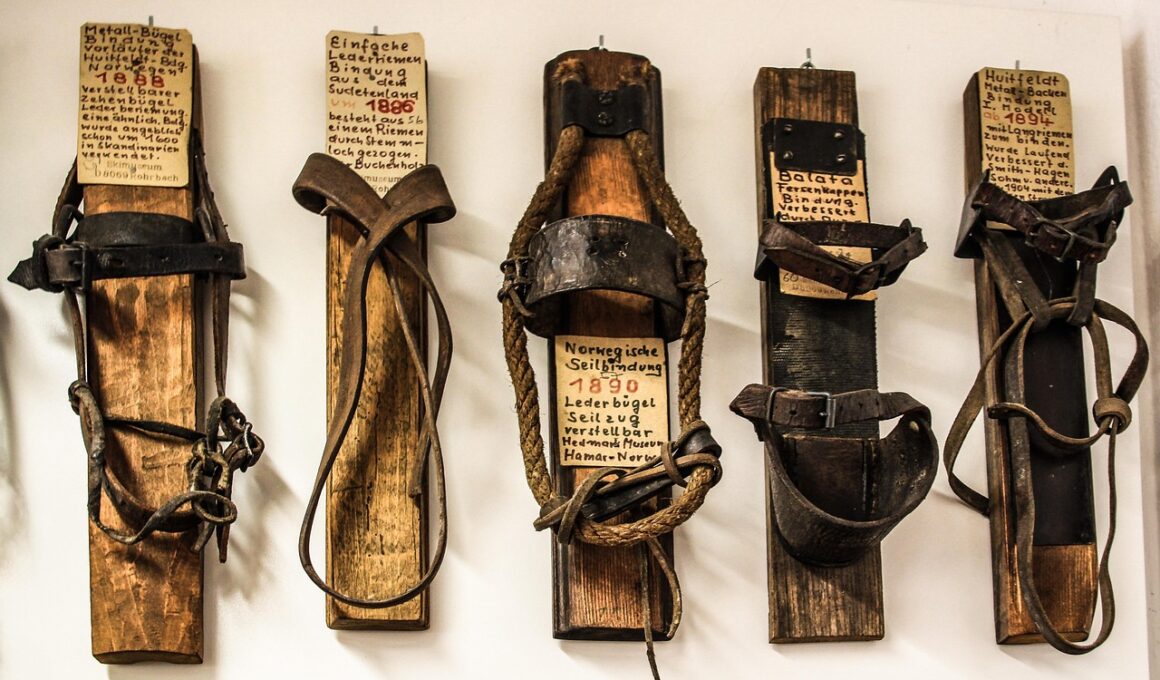 Metall-Bügel
Bindung
Vorläufer der
Huitfeldt-Bdg.
Norwegen
1888
verstellbarer
Zehenbügel
Lederberiemung.
eine ähnlich. Bdg.
wurde angeblich
schon um 1600
in Skandinavien
verwendet.
Skimuseum
D8069 Rohrbach
Einfache
Lederriemen
Bindung
aus dem
Sudetenland
um 1886
besteht aus
einem Riemen
durch Stemm-
loch gezogen.
Buchenholz
museum
Rohrbach
Norwegische
Seilbindung
1890
Lederbügel
Seilzug
verstellbar
Hedmark Museum
Hamar-Norw
Balata
Fersenkappen
Bindung.
Verbessert
durch
Huitfeldt
Metall-Backen
Bindung
I. Modell
ab 1894
mit Langriemen
zum binden.
Wurde Laufend
Verbessert d.
Smith-Hagen
Sohm u. andere
1904 mit dem